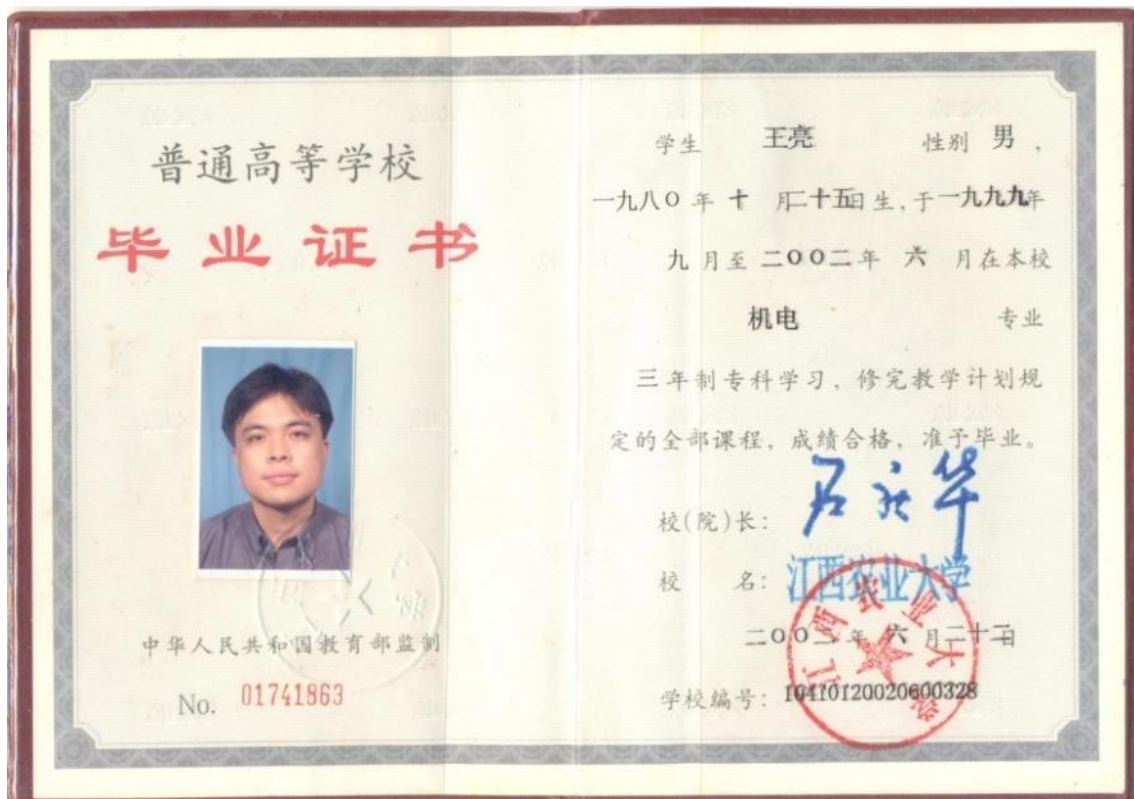 普通高等学校
毕业证书
中华人民共和国教育部监制
No. 01741863
学生 王亮 性别 男,
一九八〇年十月二十五日生,于一九九九年
九月至二〇〇二年六月在本校
机电 专业
三年制专科学习,修完教学计划规
定的全部课程,成绩合格,准予毕业。
校(院)长:
校 名:江西农业大学
二〇〇二年六月二十二日
学校编号:10410120020600328
江西农业大学